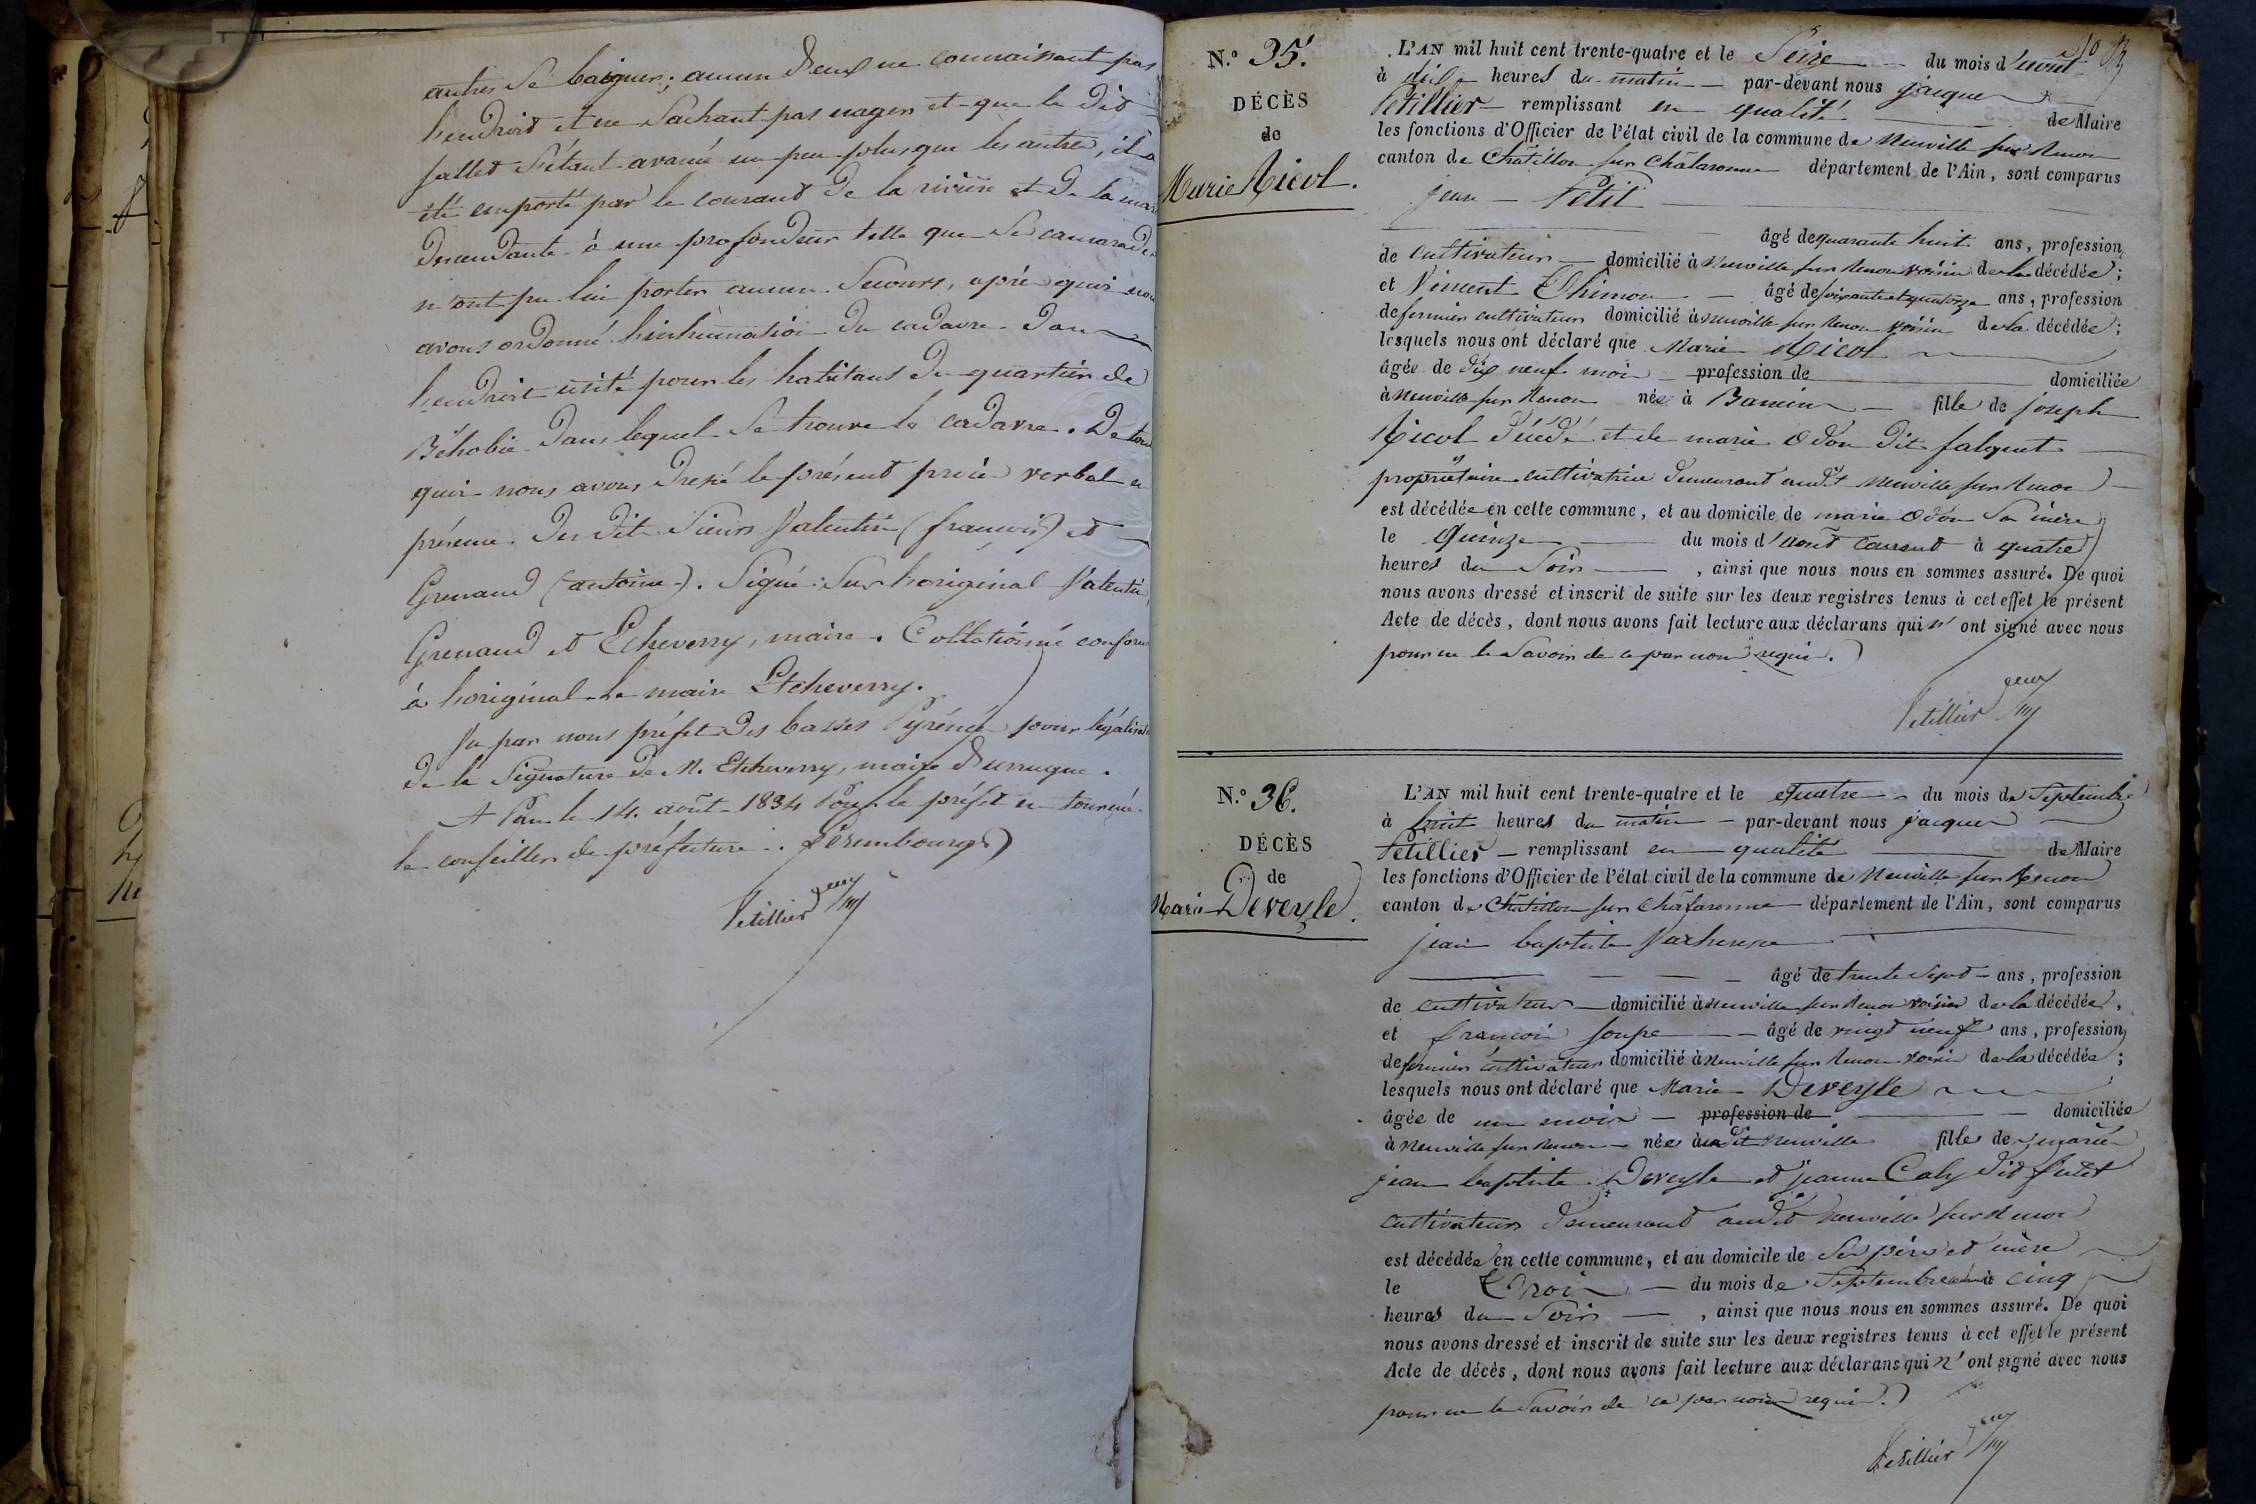 autres se baigner; aucun d'eux ne connaissant pas
l'endroit et ne sachant pas nager et que le dit
Jallet s'étant avancé un peu plus que les autres, il a
été emporté par le courant de la rivière et de la mar
descendante à une profondeur telle que ses camarades
n'ont pu lui porter aucun secours, après quoi nous
avons ordonné l'inhumation du cadavre dans
l'endroit usité pour les habitans du quartier de
Béhobie dans lequel se trouve le cadavre. De tout
quoi nous avons dressé le présent procès verbal en
présence des dits sieurs Valentin (françois) et
Grenand (antoine). Signé sur l'original Valentin,
Grenand et Etcheverry, maire. Collationné conforme
à l'original le maire Etcheverry.
Vu par nous préfet des basses Pyrénées pour légalisat
de la signature de M. Etcheverry, maire d'urrugne.
A Pau le 14. août 1834 Pour le préfet en tournée
le conseiller de préfecture. Perembourg
Petillier
N.º 35.
DÉCÈS
de
Marie Nicol.
L'AN mil huit cent trente-quatre et le Seize du mois d'août
à dix heures du matin par-devant nous jacques
Petillier remplissant en qualité de Maire
les fonctions d'Officier de l'état civil de la commune de Neuville sur Renon
canton de Châtillon sur Chalaronne département de l'Ain, sont comparus
jean Petit
âgé de quarante huit ans, profession
de cultivateur domicilié à Neuville sur Renon voisin de la décédée;
et Vincent Thimon âgé de soixante et quatorze ans, profession
de fermier cultivateur domicilié à Neuville sur Renon voisin de la décédée;
lesquels nous ont déclaré que Marie Nicol
âgée de dix neuf mois profession de domiciliée
à Neuville sur Renon née à Baneins fille de joseph
Nicol décédé et de marie Odon dit falquet
propriétaire cultivatrice demeurant audit Neuville sur Renon
est décédée en cette commune, et au domicile de marie Odon sa mère
le Quinze du mois d'août courant à quatre
heures du Soir, ainsi que nous nous en sommes assuré. De quoi
nous avons dressé et inscrit de suite sur les deux registres tenus à cet effet le présent
Acte de décès, dont nous avons fait lecture aux déclarans qui n'ont signé avec nous
pour ne le savoir de ce par nous requis.
Petillier
N.º 36.
DÉCÈS
de
Marie Deveyle.
L'AN mil huit cent trente-quatre et le Quatre du mois de Septembre
à huit heures du matin par-devant nous jacques
Petillier remplissant en qualité de Maire
les fonctions d'Officier de l'état civil de la commune de Neuville sur Renon
canton de Châtillon sur Chalaronne département de l'Ain, sont comparus
jean baptiste Vacheresse
âgé de trente Sept ans, profession
de cultivateur domicilié à Neuville sur Renon voisin de la décédée,
et francois Joupe âgé de vingt neuf ans, profession
de fermier cultivateur domicilié à Neuville sur Renon voisin de la décédée;
lesquels nous ont déclaré que Marie Deveyle
âgée de un mois profession de domiciliée
à Neuville sur Renon née audit Neuville fille de mariés
jean baptiste Deveyle et jeanne Caly dit
cultivateurs demeurant audit Neuville sur Renon
est décédée en cette commune, et au domicile de Ses père et mère
le Trois du mois de Septembre à cinq
heures du Soir, ainsi que nous nous en sommes assuré. De quoi
nous avons dressé et inscrit de suite sur les deux registres tenus à cet effet le présent
Acte de décès, dont nous avons fait lecture aux déclarans qui n'ont signé avec nous
pour ne le savoir de ce par nous requis.
Petillier